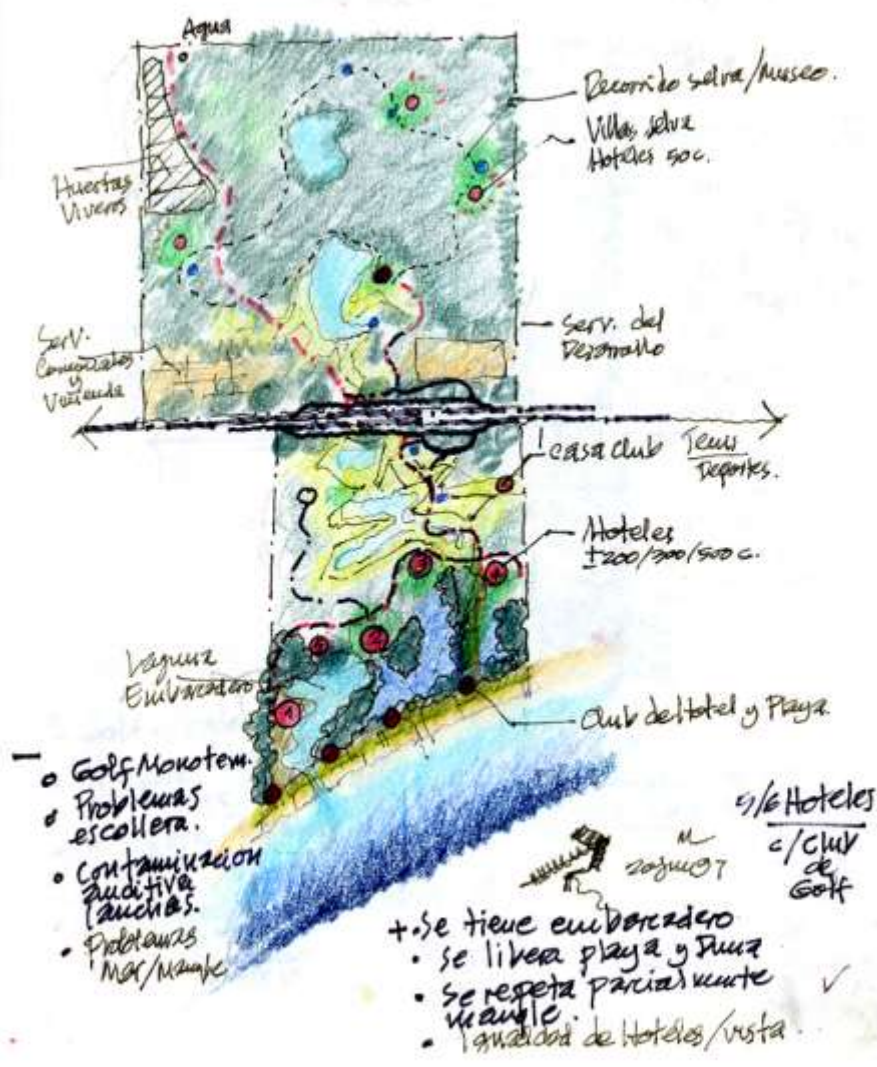 Agua
Recorrido selva/Museo.
Villas selva
Hoteles 50c.
Huertas
Viveros
Serv.
y
Vivienda
Serv. del
Desarrollo
casa club
Tenis
Deportes.
Hoteles
±200/300/500 c.
Laguna
Embarcadero
1
2
3
4
5
Club de Hotel y Playa.
—
Golf Monotem.
Problemas
escollera.
Contaminacion
auditiva
lanchas.
Problemas
Mar/Mangle
5/6 Hoteles
c/Club
de
Golf
+ • Se tiene embarcadero
• se libera playa y Duna
• se respeta parcialmente
mangle.
• Igualdad de Hoteles/vista.